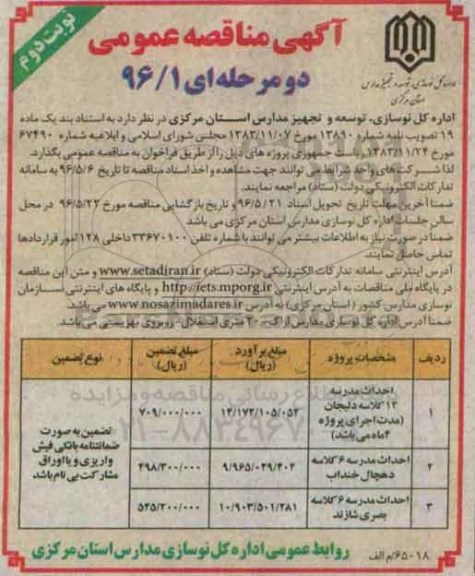 نوبت دوم
آگهی مناقصه عمومی
دو مرحله ای ۹۶/۱
اداره کل نوسازی، توسعه و تجهیز مدارس
استان مرکزی
اداره کل نوسازی، توسعه و تجهیز مدارس استان مرکزی در نظر دارد به استناد بند یک ماده
۱۹ تصویب نامه شماره ۱۳۸۹۰ مورخ ۱۳۸۳/۱۱/۰۷ مجلس شورای اسلامی و ابلاغیه شماره ۶۷۴۹۰
مورخ ۱۳۸۳/۱۱/۲۴ ریاست جمهوری پروژه های ذیل را از طریق فراخوان به مناقصه عمومی بگذارد.
لذا شرکت های واجد شرایط می توانند جهت مشاهده و اخذ اسناد مناقصه تا تاریخ ۹۶/۵/۶ به سامانه
تدارکات الکترونیکی دولت (ستاد) مراجعه نمایند.
ضمنا آخرین مهلت تاریخ تحویل اسناد ۹۶/۵/۲۱ و تاریخ بازگشایی مناقصه مورخ ۹۶/۵/۲۲ در محل
سالن جلسات اداره کل نوسازی مدارس استان مرکزی می باشد
ضمنا در صورت نیاز به اطلاعات بیشتر می توانند با شماره تلفن ۳۳۶۷۰۱۰۰ داخلی ۱۲۸ امور قراردادها
تماس حاصل نمایند.
آدرس اینترنتی سامانه تدارکات الکترونیکی دولت (ستاد) www.setadiran.ir و متن این مناقصه
در پایگاه ملی مناقصات به آدرس اینترنتی http://iets.mporg.ir و پایگاه های اینترنتی سازمان
نوسازی مدارس کشور (استان مرکزی) به آدرس www.nosazimadares.ir می باشد.
ضمنا آدرس اداره کل نوسازی مدارس اراک ۲۰ متری استقلال - روبروی بهزیستی می باشد.
ردیف مشخصات پروژه مبلغ برآورد (ریال) مبلغ تضمین (ریال) نوع تضمین
۱ احداث مدرسه ۱۲ کلاسه دلیجان (مدت اجرای پروژه ۴ ماه می باشد) ۱۴/۱۷۲/۱۰۵/۰۵۲ ۷۰۹/۰۰۰/۰۰۰
۲ احداث مدرسه ۶ کلاسه دهچال خنداب ۹/۹۶۵/۰۲۹/۴۰۲ ۴۹۸/۳۰۰/۰۰۰
۳ احداث مدرسه ۶ کلاسه بصری شازند ۱۰/۹۰۳/۵۰۱/۲۸۱ ۵۴۵/۲۰۰/۰۰۰
تضمین به صورت
ضمانتنامه بانکی فیش
واریزی و یا اوراق
مشارکت بی نام باشد
روابط عمومی اداره کل نوسازی مدارس استان مرکزی
۶۵۰۱۸/م الف